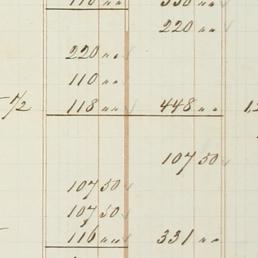 110 " " 330 " "
220 " "
220 " "
110 " "
1/2 118 " " 448 " "
107 50
107 50
107 50
116 " " 331 " "